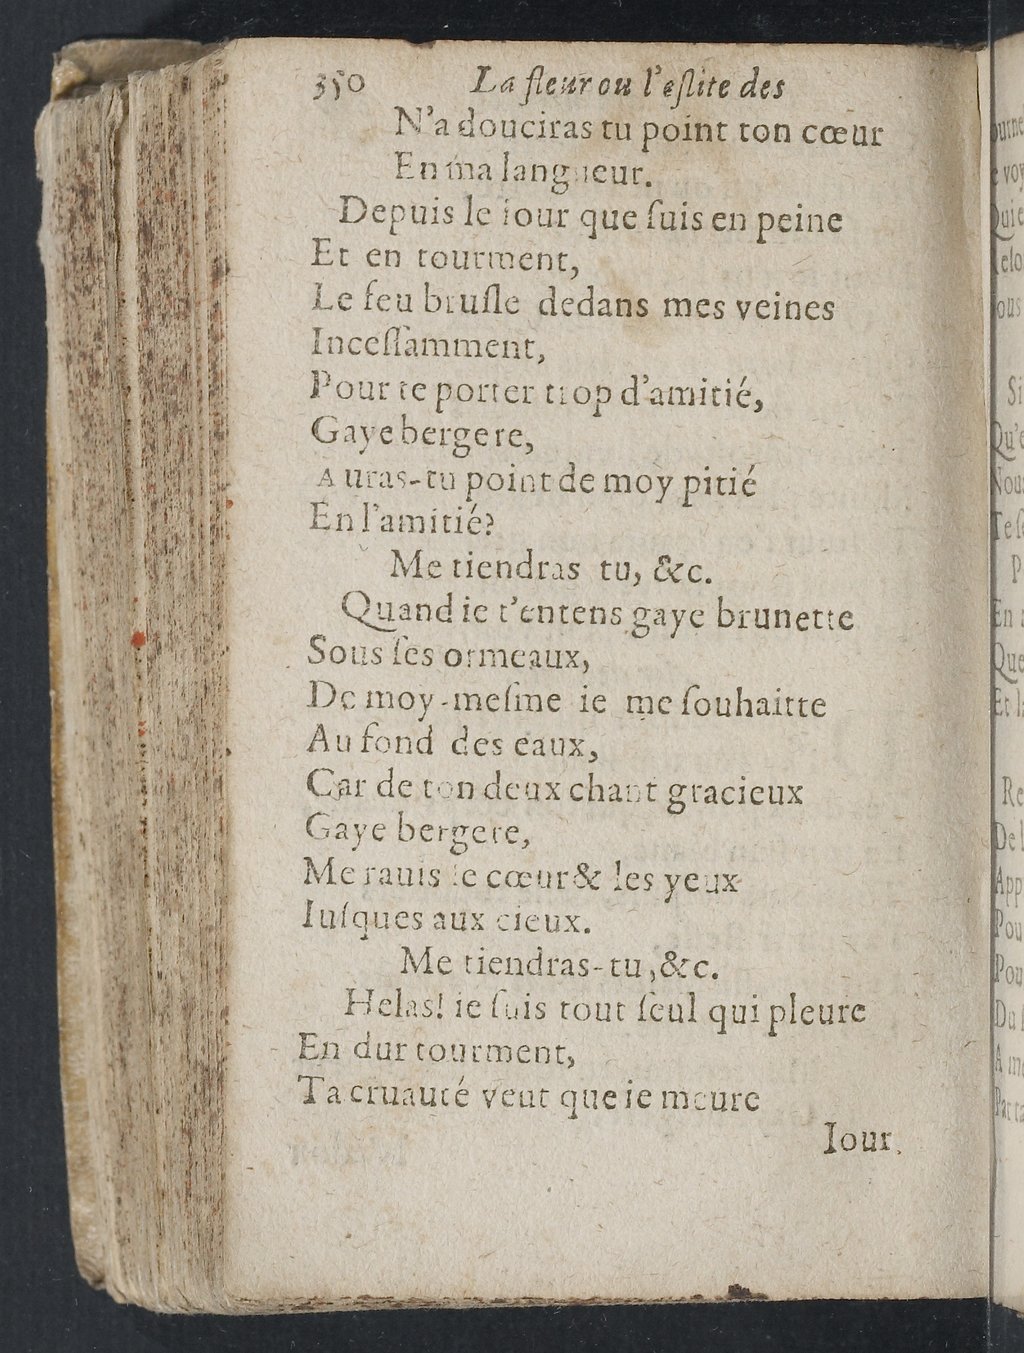 350 La fleur ou l'eſlite des
N'a douciras tu point ton cœur
En ma langueur.
Depuis le iour que ſuis en peine
Et en tourment,
Le feu bruſle dedans mes veines
Inceſſamment,
Pour te porter trop d'amitié,
Gaye bergere,
Auras-tu point de moy pitié
En l'amitié?
Me tiendras tu, &c.
Quand ie t'entens gaye brunette
Sous ſes ormeaux,
De moy-meſme ie me ſouhaitte
Au fond des eaux,
Car de ton doux chant gracieux
Gaye bergere,
Me rauis le cœur & les yeux
Iuſques aux cieux.
Me tiendras-tu, &c.
Helas! ie ſuis tout ſeul qui pleure
En dur tourment,
Ta cruauté veut que ie meure
Iour.